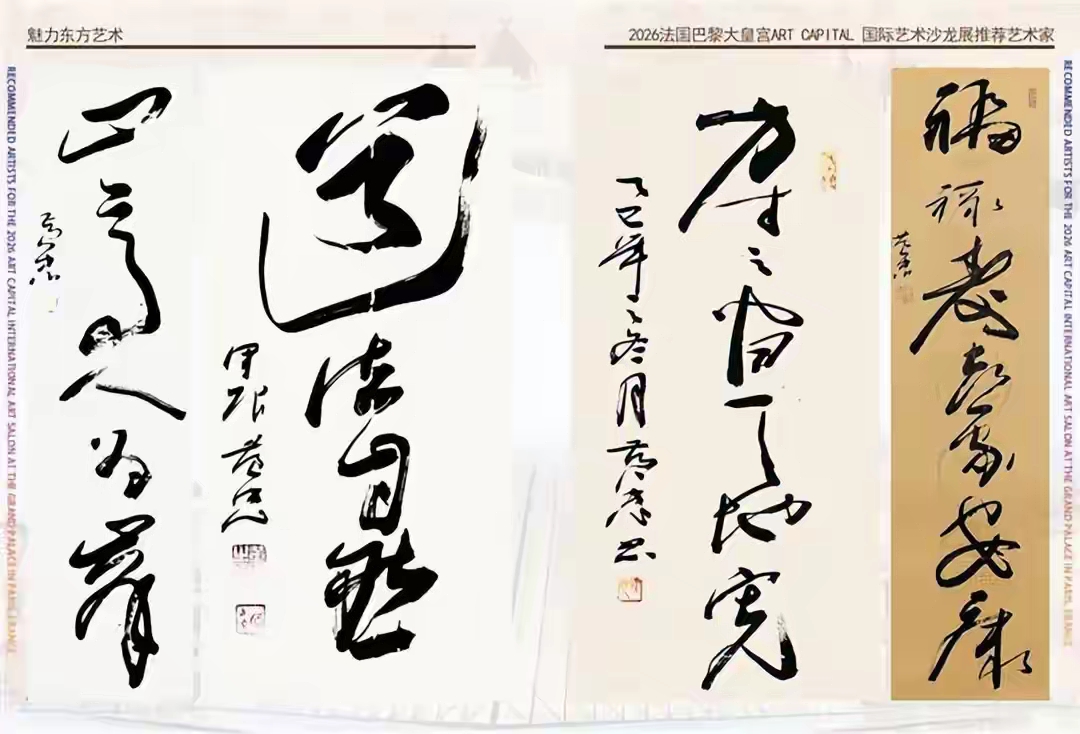 魅力东方艺术
2026法国巴黎大皇宫ART CAPITAL 国际艺术沙龙展推荐艺术家
RECOMMENDED ARTISTS FOR THE 2026 ART CAPITAL INTERNATIONAL ART SALON AT THE GRAND PALACE IN PARIS, FRANCE
山高人为峰
道法自然
甲辰
方寸之间天地宽
乙巳年冬月
书
福禄寿喜家安康
RECOMMENDED ARTISTS FOR THE 2026 ART CAPITAL INTERNATIONAL ART SALON AT THE GRAND PALACE IN PARIS, FRANCE